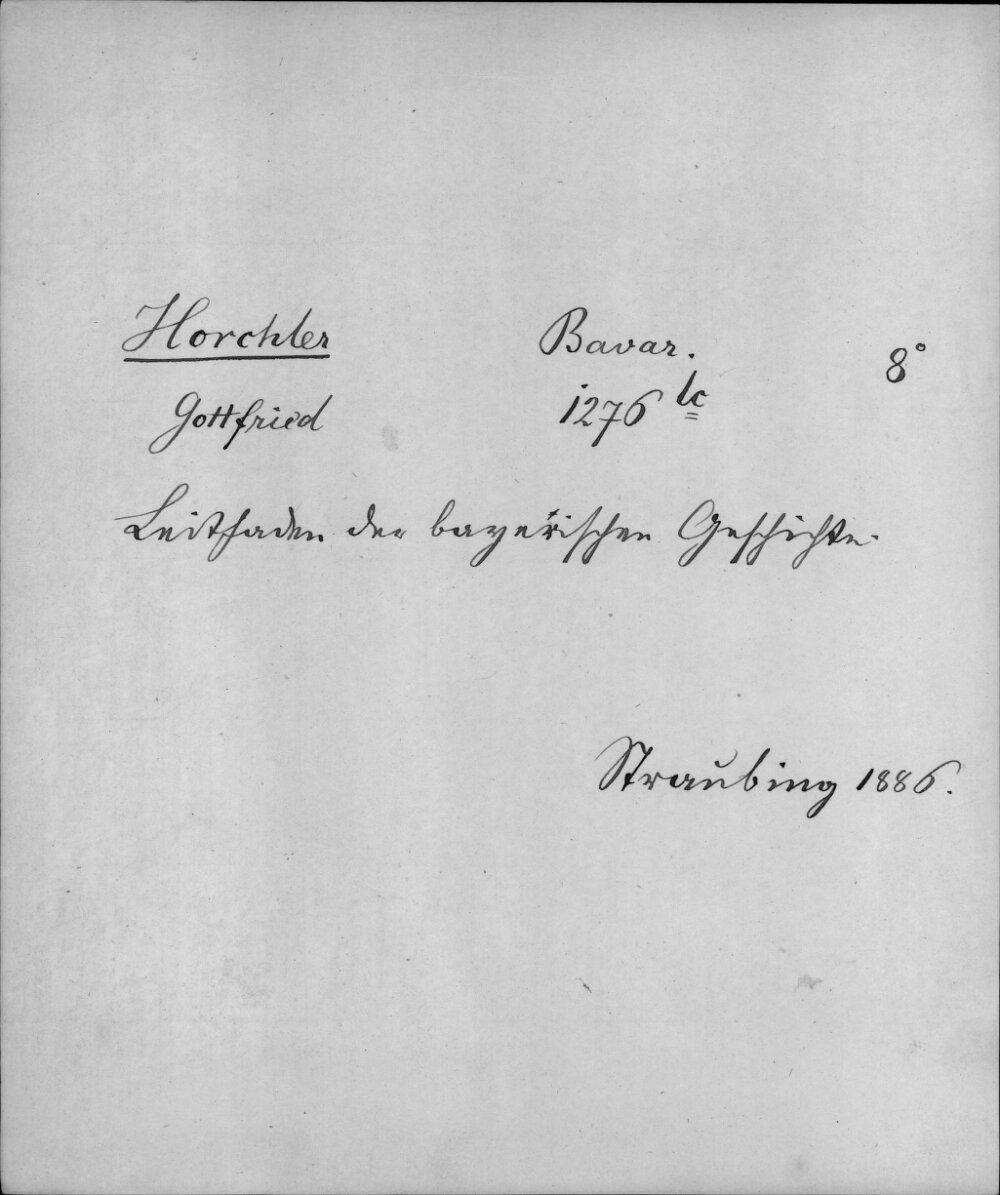 Horchler
Bavar.
8°
Gottfried
1276 lc
Leitfaden der bayerischen Geschichte.
Straubing 1886.